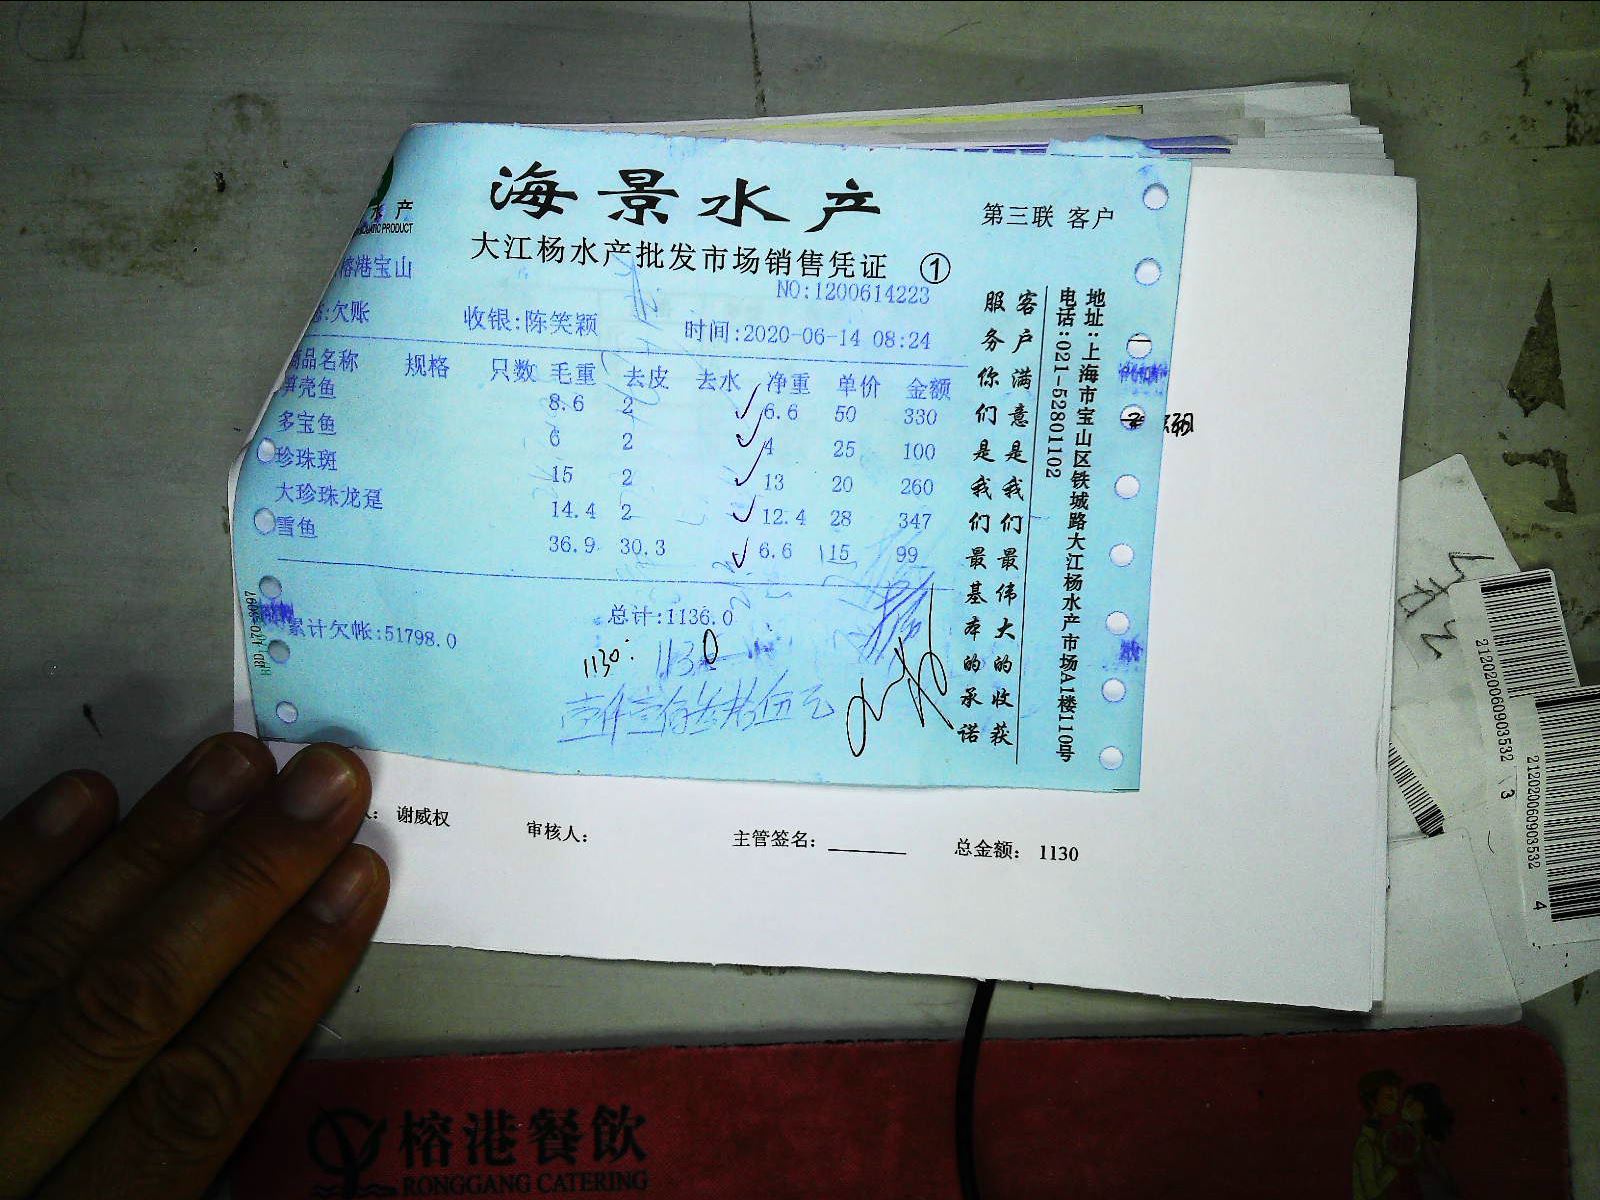 水产
海景水产
第三联 客户
大江杨水产批发市场销售凭证 ①
榕港宝山
NO:1200614223
:欠账 收银:陈笑颖 时间:2020-06-14 08:24
商品名称 规格 只数 毛重 去皮 去水 净重 单价 金额
笋壳鱼 8.6 2 6.6 50 330
多宝鱼 6 2 4 25 100
珍珠斑 15 2 13 20 260
大珍珠龙趸 14.4 2 12.4 28 347
雪鱼 36.9 30.3 6.6 15 99
总计:1136.0
累计欠帐:51798.0
1130. 1130
壹仟壹佰叁拾伍元
客户满意是我们最伟大的收获
服务你们是我们最基本的承诺
地址:上海市宝山区铁城路大江杨水产市场A1楼110号
电话:021-52801102
谢威权 审核人: 主管签名: 总金额: 1130
212020060903532 3
212020060903532 4
榕港餐飲
RONGGANG CATERING